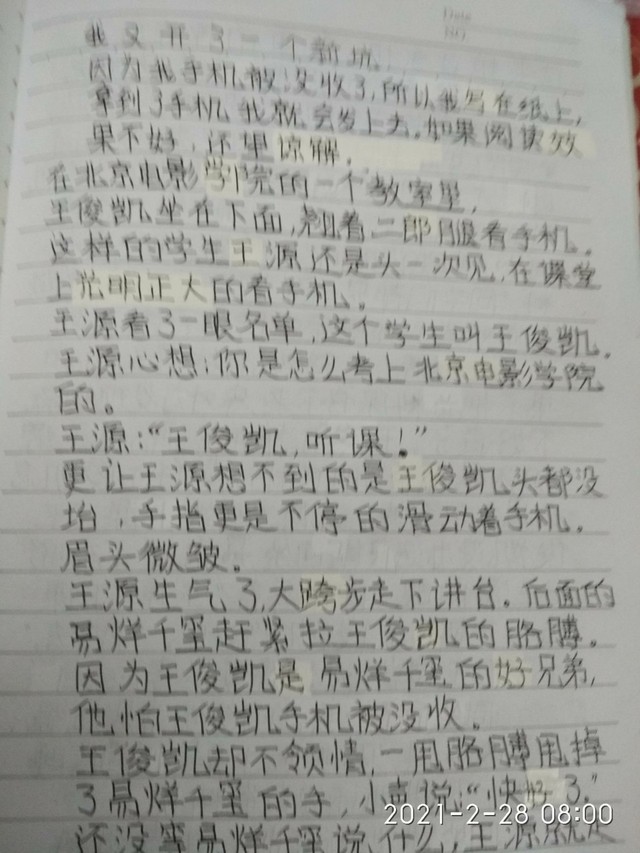 Date
NO.
我又开了一个新坑。
因为我手机被没收了,所以我写在纸上,
拿到了手机我就会发上去。如果阅读效
果不好,还望谅解。
在北京电影学院的一个教室里,
王俊凯坐在下面,翘着二郎腿看手机。
这样的学生王源还是头一次见,在课堂
上光明正大的看手机。
王源看了一眼名单,这个学生叫王俊凯。
王源心想:你是怎么考上北京电影学院
的。
王源:“王俊凯,听课!”
更让王源想不到的是王俊凯头都没
抬,手指更是不停的滑动着手机。
眉头微皱。
王源生气了,大跨步走下讲台。后面的
易烊千玺赶紧拉王俊凯的胳膊。
因为王俊凯是易烊千玺的好兄弟,
他怕王俊凯手机被没收。
王俊凯却不领情,一甩胳膊甩掉
了易烊千玺的手,小声说:“快好了。”
还没等易烊千玺说什么,王源就走
2021-2-28 08:00